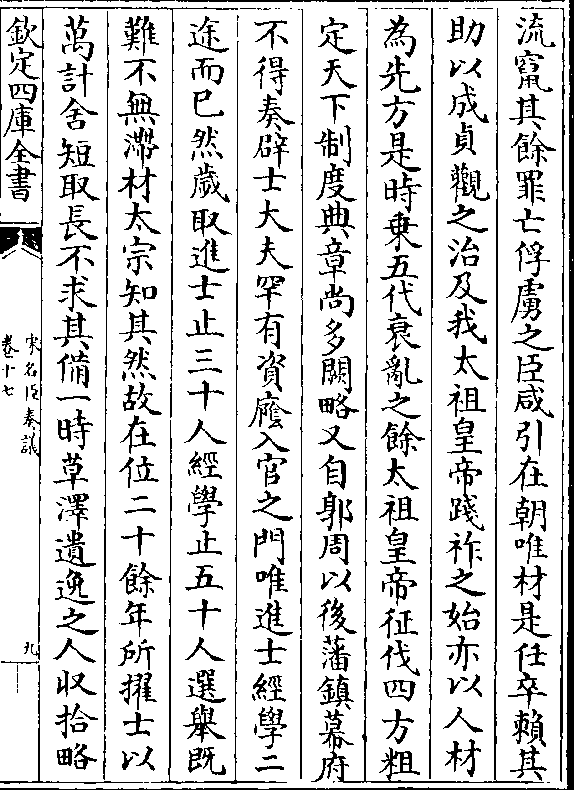 流竄其餘罪亡俘虜之臣咸引在朝唯材是任卒賴其
助以成貞觀之治及我太祖皇帝踐祚之始亦以人材
為先方是時乗五代衰亂之餘太祖皇帝征伐四方粗
定天下制度典章尚多闕略又自郭周以後藩鎮幕府
不得奏辟士大夫罕有資廕入官之門唯進士經學二
途而已然歲取進士止三十人經學止五十人選舉既
難不無滯材太宗知其然故在位二十餘年所擢士以
萬計舍短取長不求其備一時草澤遺逸之人収拾略
欽定四庫全書
宋名臣奏議
卷十七
九